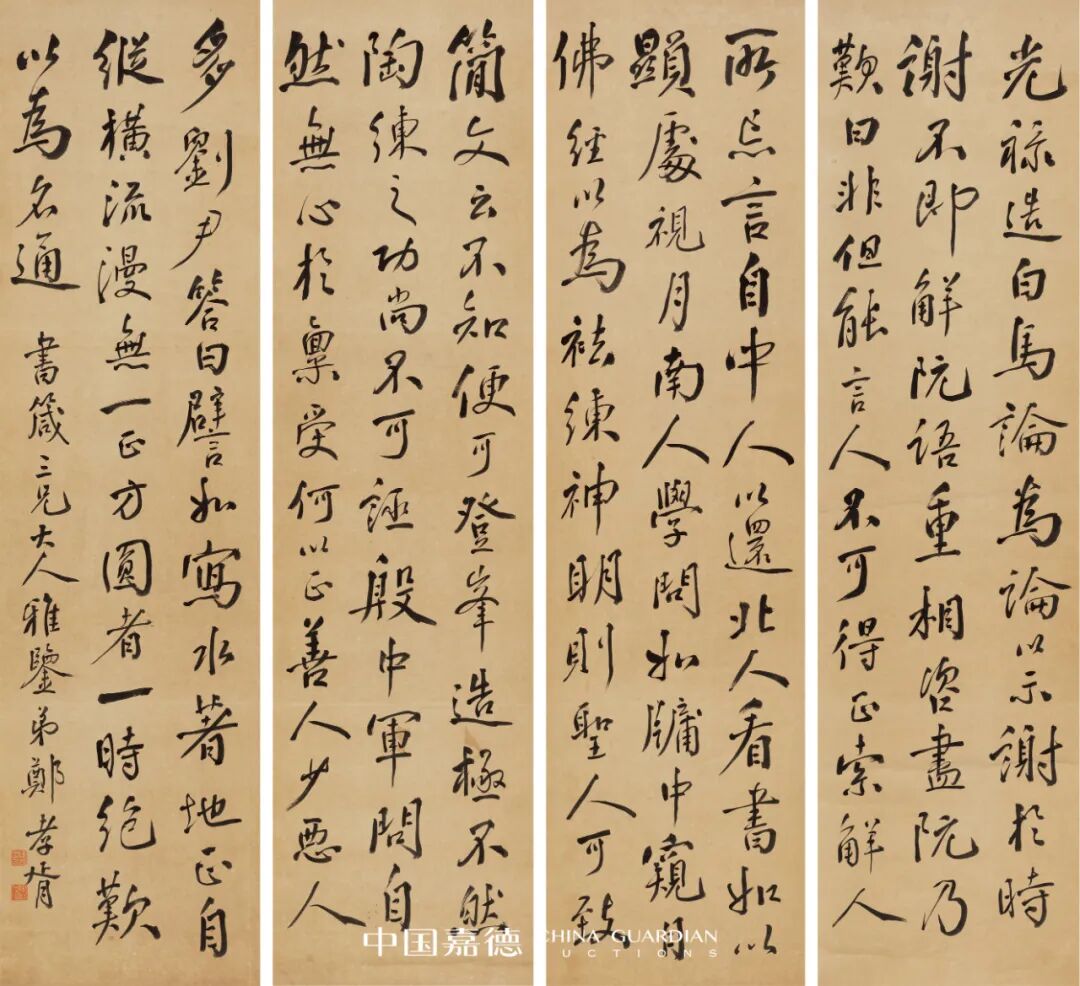 光祿造白馬論為論以示謝於時
謝不即解阮語重相咨盡阮乃
歎曰非但能言人不可得正索解人
所忘言自中人以還北人看書如以
顯處視月南人學問如牖中窺月
佛經以為祛練神明則聖人可致
簡文云不知便可登峯造極不然
陶練之功尚不可誣殷中軍問自
然無心於稟受何以正善人少惡人
多劉尹答曰譬如寫水著地正自
縱橫流漫無一正方圓者一時絕歎
以為名通 書箴三兄大人雅鑒弟鄭孝胥
中国嘉德 CHINA GUARDIAN
AUCTIONS